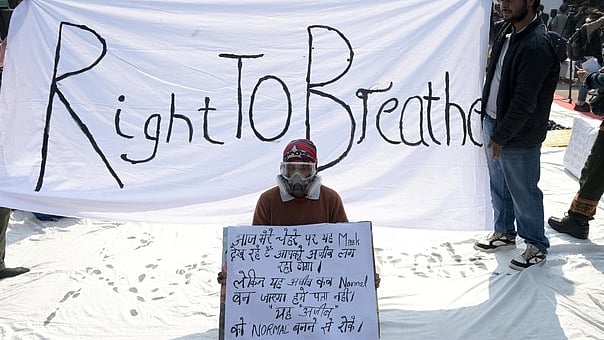 Right To Breathe
आज मेरे चेहरे पर यह Mask
देख रहे हैं आपको अजीब लग
रहा होगा।
लेकिन यह अजीब कब Normal
बन जाएगा हमे पता नहीं।
"यह "अजीब"
को NORMAL बनने से रोकें।